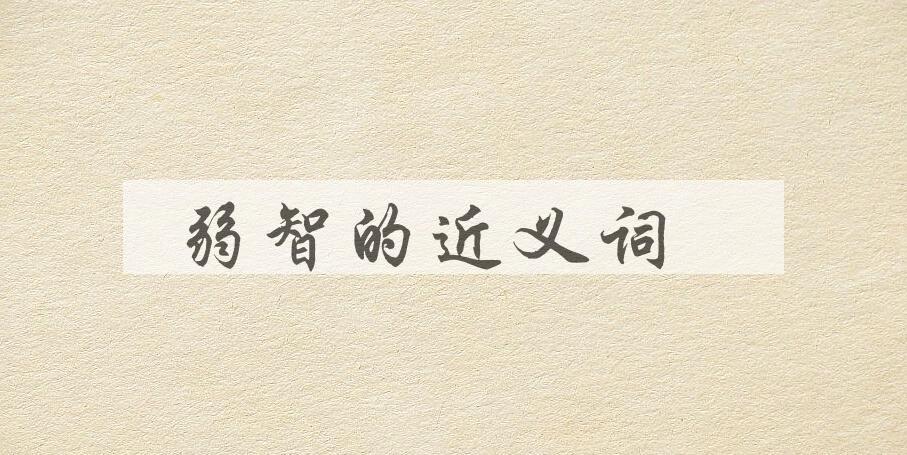 弱智的近义词